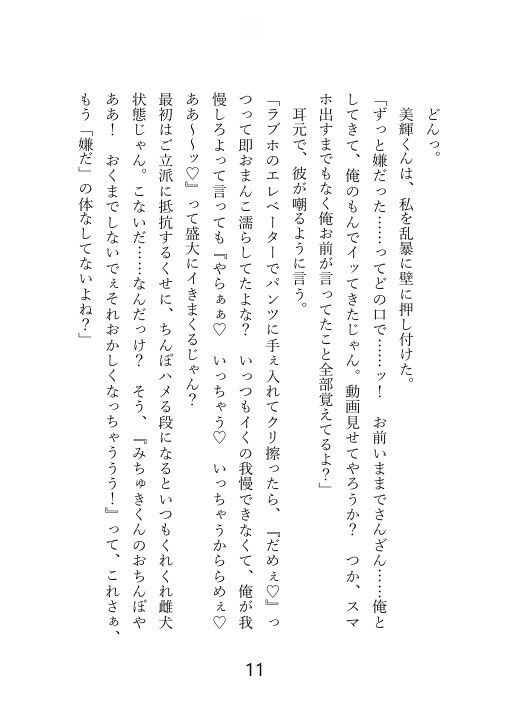 どんっ。
美輝くんは、私を乱暴に壁に押し付けた。
「ずっと嫌だった……ってどの口で……ッ！　お前いままでさんざん……俺と
してきて、俺のもんでイッてきたじゃん。動画見せてやろうか？　つか、スマ
ホ出すまでもなく俺お前が言ってたこと全部覚えてるよ？」
耳元で、彼が嘲るように言う。
「ラブホのエレベーターでパンツに手ぇ入れてクリ擦ったら、『だめぇ♡』っ
つって即おまんこ濡らしてたよな？　いっつもイくの我慢できなくて、俺が我
慢しろよって言っても『やらぁぁ♡　いっちゃう♡　いっちゃうかららめぇ♡
ああ～～ッ♡』って盛大にイきまくるじゃん？
最初はご立派に抵抗するくせに、ちんぽハメる段になるといつもくれくれ雌犬
状態じゃん。こないだ……なんだっけ？　そう、『みちゅきくんのおちんぽや
ああ！　おくまでしないでぇそれおかしくなっちゃううう！』って、これさぁ、
もう「嫌だ」の体なしてないよね？」
11